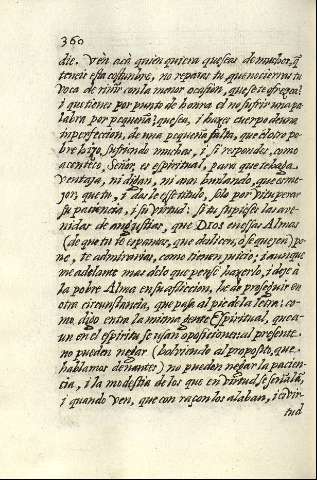 360
die. Ven acà quien quiera que seas de muger, q̃
tenéis esta costumbre, no reparas tu que no cierras tu
voca de reñir con la menor ocasión, que se te ofrezca?
i que tienes por punto de honra el no sufrir una pa
labra por pequeña que sea, i hazes cuerpo de una
inperfeccion, de una pequeña falta, que el otro po
bre hizo, sufriendo muchas, i si respondes, como
acontece, Señor, es espiritual, para que te haga
ventaja, ni digan, ni aun burlando, que es me
jor, que tu, i darle este titulo, solo por vituperar
su paciencia, i su virtud: si tu supieses las ave
nidas de angustias, que Dios en essas Almas
(de que tu te espantas, que deslicen, ò se quejen) po
ne, te admirarias, como tienen juicio; i aunque
me adelante mas de lo que pensè hazerlo, i dejè à
la pobre Alma en su afliccion, he de proseguir en
otra circunstancia, que pasa al pie de la letra: co
mo digo entre la misma gente Espiritual, que a
un en el espiritu se usan oposiciones: al presente
no pueden negar (bolviendo al proposito, que
hablamos denantes) no pueden negar la pacien
cia, i la modestia de los que en virtud se señalã,
i quando ven, que con raçon los alaban, i el vir
tud